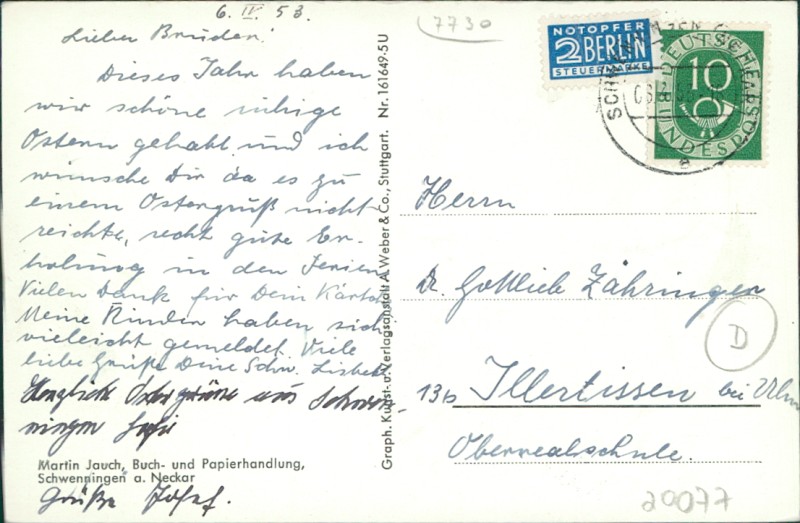 6. IV. 53.
Lieber Bruder!
Dieses Jahr haben
wir schöne ruhige
Ostern gehabt und ich
wünsche Dir da es zu
einem Ostergruß nicht
reichte, recht gute Er-
holung in den Ferien
Vielen Dank für Dein Kärtch
Meine Kinder haben sich
vielleicht gemeldet. Viele
liebe Grüße Deine Schw. Lisbeth
Herzliche Ostergrüße aus Schwen-
ningen
Martin Jauch, Buch- und Papierhandlung,
Schwenningen a. Neckar
Grüße Josef.
Graph. Kunst- u. Verlagsanstalt A. Weber & Co., Stuttgart. Nr. 161649·5 U
7730
NOTOPFER
2 BERLIN
STEUERMARKE
DEUTSCHE POST
10
BUNDESPOST
Herrn
Dr. Gottlieb Zähringer
D
13b Illertissen bei Ulm
Oberrealschule.
20077